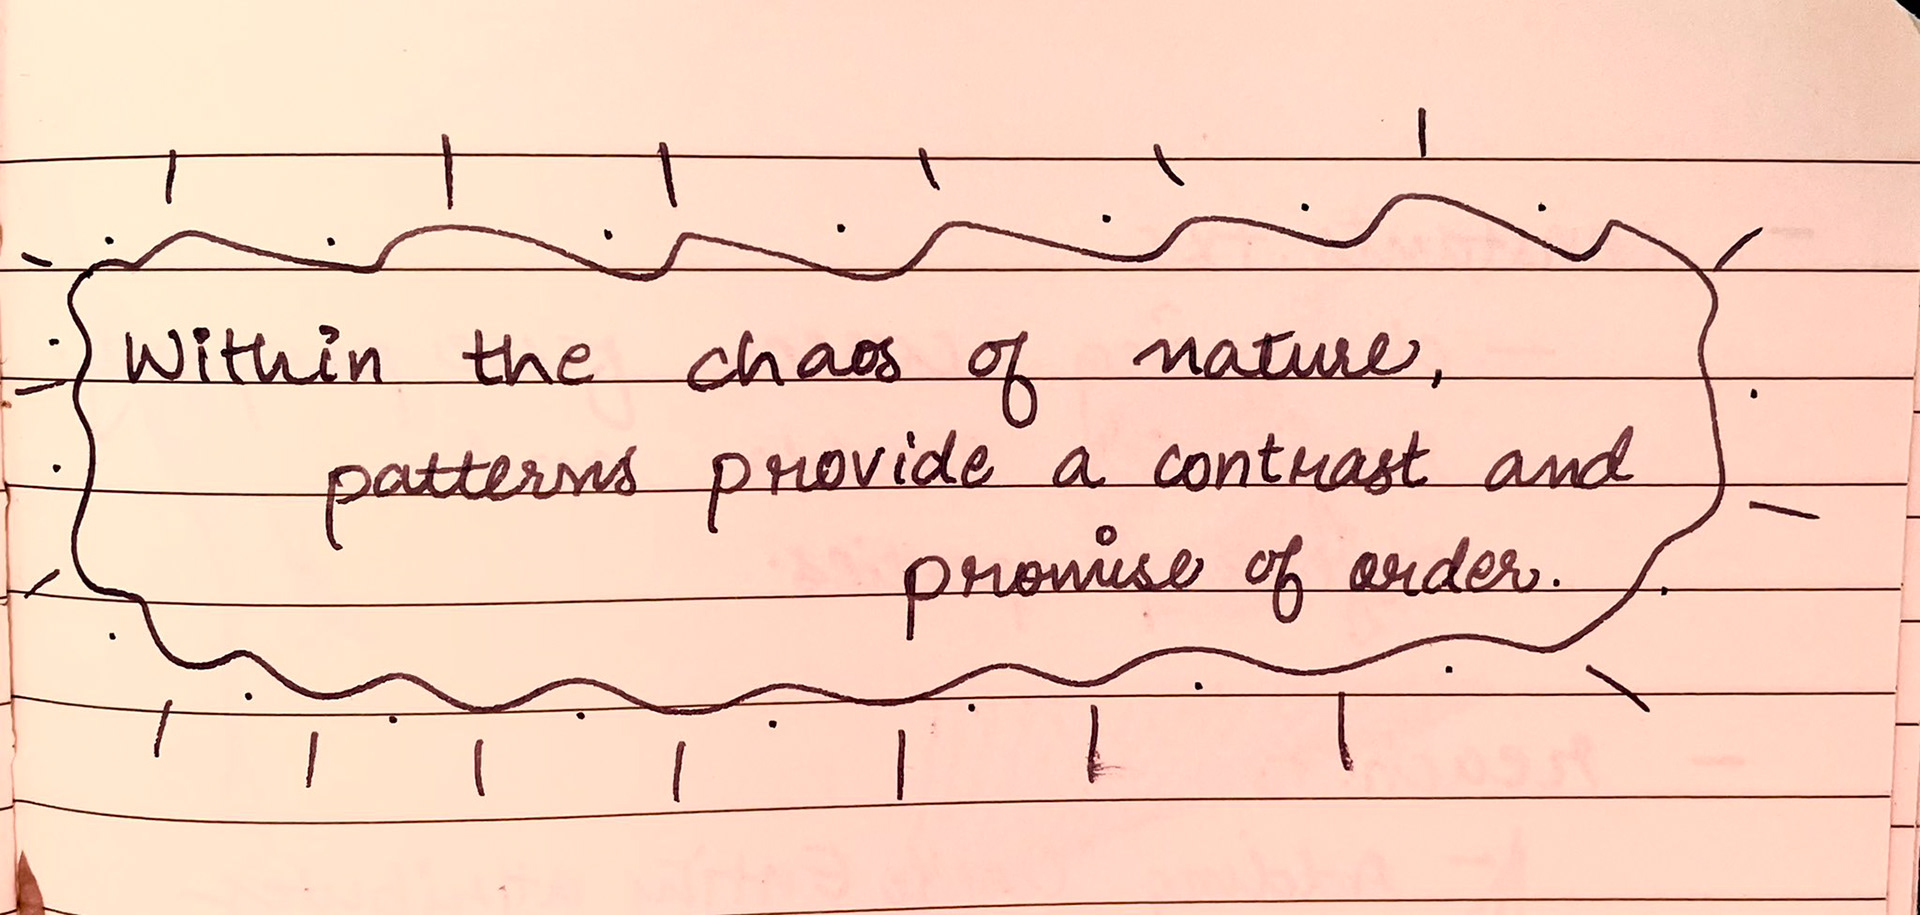 Within the chaos of nature,
patterns provide a contrast and
promise of order.